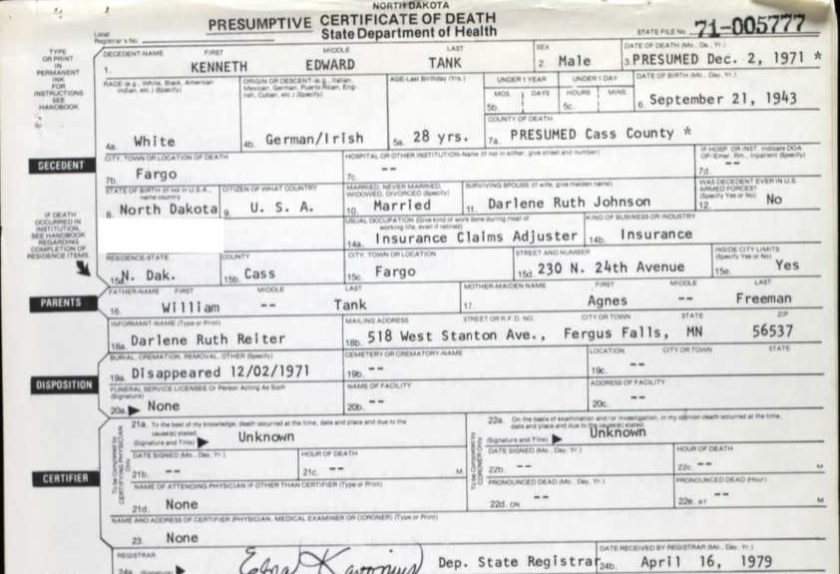 NORTH DAKOTA
PRESUMPTIVE CERTIFICATE OF DEATH
State Department of Health
Local
Registrar's No.
STATE FILE No. 71-005777
TYPE
OR PRINT
IN
PERMANENT
INK
FOR
INSTRUCTIONS
SEE
HANDBOOK
DECEDENT-NAME FIRST MIDDLE LAST
1. KENNETH EDWARD TANK
SEX
2. Male
DATE OF DEATH (Mo., Day, Yr.)
3. PRESUMED Dec. 2, 1971 *
RACE-(e.g., White, Black, American
Indian, etc.) (Specify)
4a. White
ORIGIN OR DESCENT-(e.g., Italian,
Mexican, German, Puerto Rican, Eng-
lish, Cuban, etc.) (Specify)
4b. German/Irish
AGE-Last Birthday (Yrs.)
5a. 28 yrs.
UNDER 1 YEAR
MOS. DAYS
5b.
UNDER 1 DAY
HOURS MINS.
5c.
DATE OF BIRTH (Mo., Day, Yr.)
6. September 21, 1943
COUNTY OF DEATH
7a. PRESUMED Cass County *
DECEDENT
CITY, TOWN OR LOCATION OF DEATH
7b. Fargo
HOSPITAL OR OTHER INSTITUTION-Name (If not in either, give street and number)
7c. --
IF HOSP. OR INST. Indicate DOA
OP/Emer. Rm., Inpatient (Specify)
7d. --
STATE OF BIRTH (If not in U.S.A.,
name country)
8. North Dakota
CITIZEN OF WHAT COUNTRY
9. U. S. A.
MARRIED, NEVER MARRIED,
WIDOWED, DIVORCED (Specify)
10. Married
SURVIVING SPOUSE (If wife, give maiden name)
11. Darlene Ruth Johnson
WAS DECEDENT EVER IN U.S.
ARMED FORCES?
(Specify Yes or No)
12. No
IF DEATH
OCCURRED IN
INSTITUTION,
SEE HANDBOOK
REGARDING
COMPLETION OF
RESIDENCE ITEMS.
USUAL OCCUPATION (Give kind of work done during most of
working life, even if retired)
14a. Insurance Claims Adjuster
KIND OF BUSINESS OR INDUSTRY
14b. Insurance
RESIDENCE-STATE
15a. N. Dak.
COUNTY
15b. Cass
CITY, TOWN OR LOCATION
15c. Fargo
STREET AND NUMBER
15d. 230 N. 24th Avenue
INSIDE CITY LIMITS
(Specify Yes or No)
15e. Yes
PARENTS
FATHER-NAME FIRST MIDDLE LAST
16. William -- Tank
MOTHER-MAIDEN NAME FIRST MIDDLE LAST
17. Agnes -- Freeman
INFORMANT-NAME (Type or Print)
18a. Darlene Ruth Reiter
MAILING ADDRESS STREET OR R.F.D. NO. CITY OR TOWN STATE ZIP
18b. 518 West Stanton Ave., Fergus Falls, MN 56537
DISPOSITION
BURIAL, CREMATION, REMOVAL, OTHER (Specify)
19a. Disappeared 12/02/1971
CEMETERY OR CREMATORY-NAME
19b. --
LOCATION CITY OR TOWN STATE
19c. --
FUNERAL SERVICE LICENSEE Or Person Acting As Such
(Signature)
20a. None
NAME OF FACILITY
20b. --
ADDRESS OF FACILITY
20c. --
CERTIFIER
To be Completed by
CERTIFYING PHYSICIAN
Only
21a. To the best of my knowledge, death occurred at the time, date and place and due to the
cause(s) stated.
(Signature and Title) Unknown
DATE SIGNED (Mo., Day, Yr.)
21b. --
HOUR OF DEATH
21c. -- M
NAME OF ATTENDING PHYSICIAN IF OTHER THAN CERTIFIER (Type or Print)
21d. None
To be Completed by
CORONER Only
22a. On the basis of examination and/or investigation, in my opinion death occurred at the time,
date and place and due to the cause(s) stated.
(Signature and Title) Unknown
DATE SIGNED (Mo., Day, Yr.)
22b. --
HOUR OF DEATH
22c. -- M
PRONOUNCED DEAD (Mo., Day, Yr.)
22d. ON --
PRONOUNCED DEAD (Hour)
22e. AT -- M
NAME AND ADDRESS OF CERTIFIER (PHYSICIAN, MEDICAL EXAMINER OR CORONER) (Type or Print)
23. None
REGISTRAR
24a. (Signature) Edna Dep. State Registrar
DATE RECEIVED BY REGISTRAR (Mo., Day, Yr.)
24b. April 16, 1979